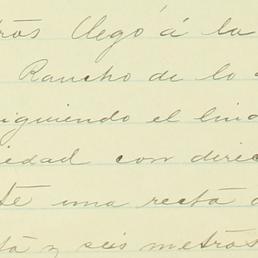 ros llegó á la
Rancho de lo
iguiendo el lin
iedad con direc
te una recta
ta y seis metros